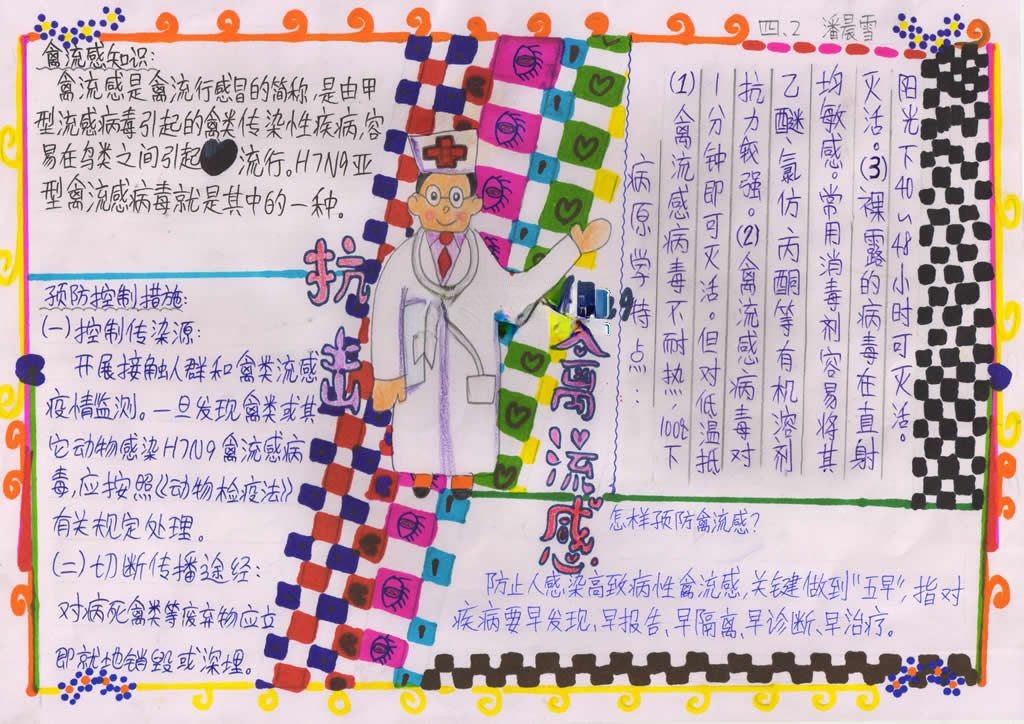 四.2 潘晨雪
禽流感知识:
禽流感是禽流行感冒的简称,是由甲
型流感病毒引起的禽类传染性疾病,容
易在鸟类之间引起流行。H7N9亚
型禽流感病毒就是其中的一种。
抗击
9
禽流感
预防控制措施:
(一)控制传染源:
开展接触人群和禽类流感
疫情监测。一旦发现禽类或其
它动物感染H7N9禽流感病
毒,应按照《动物检疫法》
有关规定处理。
(二)切断传播途经:
对病死禽类等废弃物应立
即就地销毁或深埋。
病原学特点:
(1)禽流感病毒不耐热,100℃下
1分钟即可灭活。但对低温抵
抗力较强。(2)禽流感病毒对
乙醚、氯仿、丙酮等有机溶剂
均敏感。常用消毒剂容易将其
灭活。(3)裸露的病毒在直射
阳光下40~48小时可灭活。
怎样预防禽流感?
防止人感染高致病性禽流感,关键做到"五早",指对
疾病要早发现、早报告、早隔离、早诊断、早治疗。